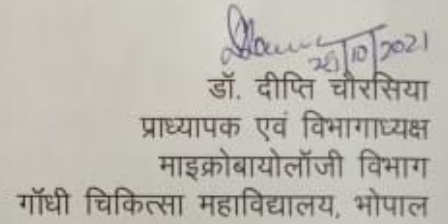 28/10/2021
डॉ. दीप्ति चौरसिया
प्राध्यापक एवं विभागाध्यक्ष
माइक्रोबायोलॉजी विभाग
गॉंधी चिकित्सा महाविद्यालय, भोपाल